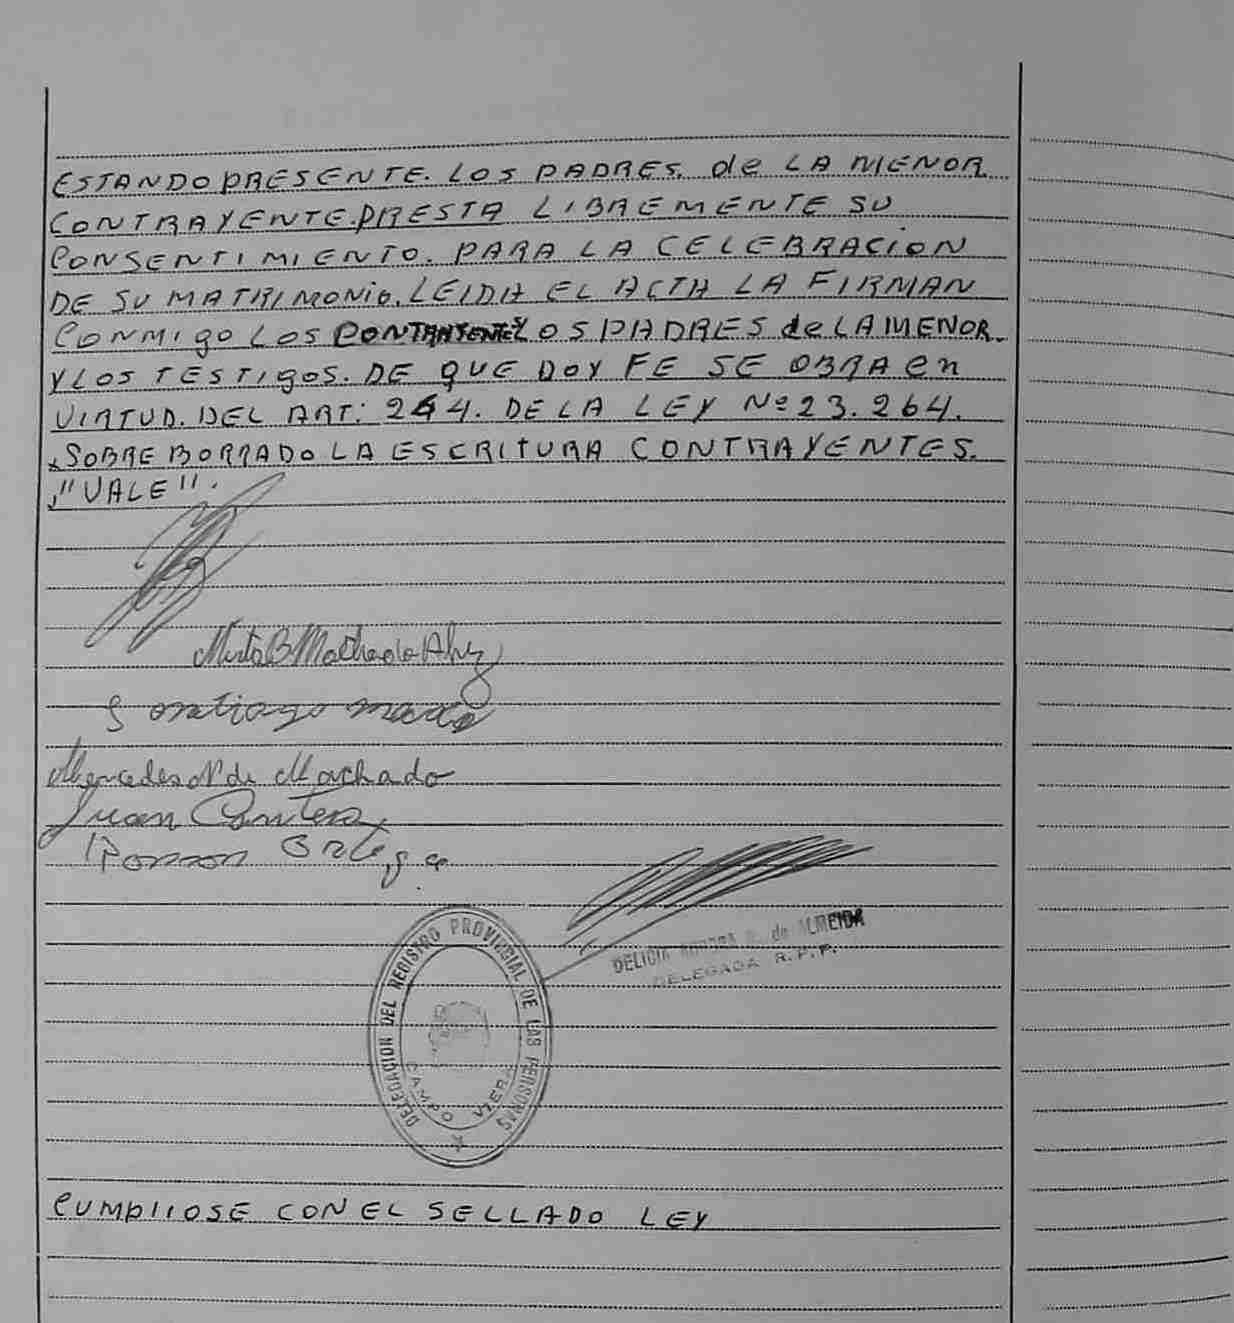 ESTANDO PRESENTE. LOS PADRES. de LA MENOR
CONTRAYENTE. PRESTA LIBREMENTE SU
CONSENTIMIENTO. PARA LA CELEBRACION
DE SU MATRIMONIO. LEIDA EL ACTA LA FIRMAN
CONMIGO LOS LOS PADRES de LA MENOR.
Y LOS TESTIGOS. DE QUE DOY FE SE OBRA en
VIRTUD. DEL ART: 264. DE LA LEY Nº 23.264.
SOBRE BORRADO LA ESCRITURA CONTRAYENTES.
"VALE".
Mirta B Machado
Santiago
Mercedes N de Machado
Juan
Ramon Ortega
DELICIA de ALMEIDA
DELEGADA R.P.P.
DELEGACION DEL REGISTRO PROVINCIAL DE LAS PERSONAS
CAMPO VIERA
CUMPLIOSE CON EL SELLADO LEY